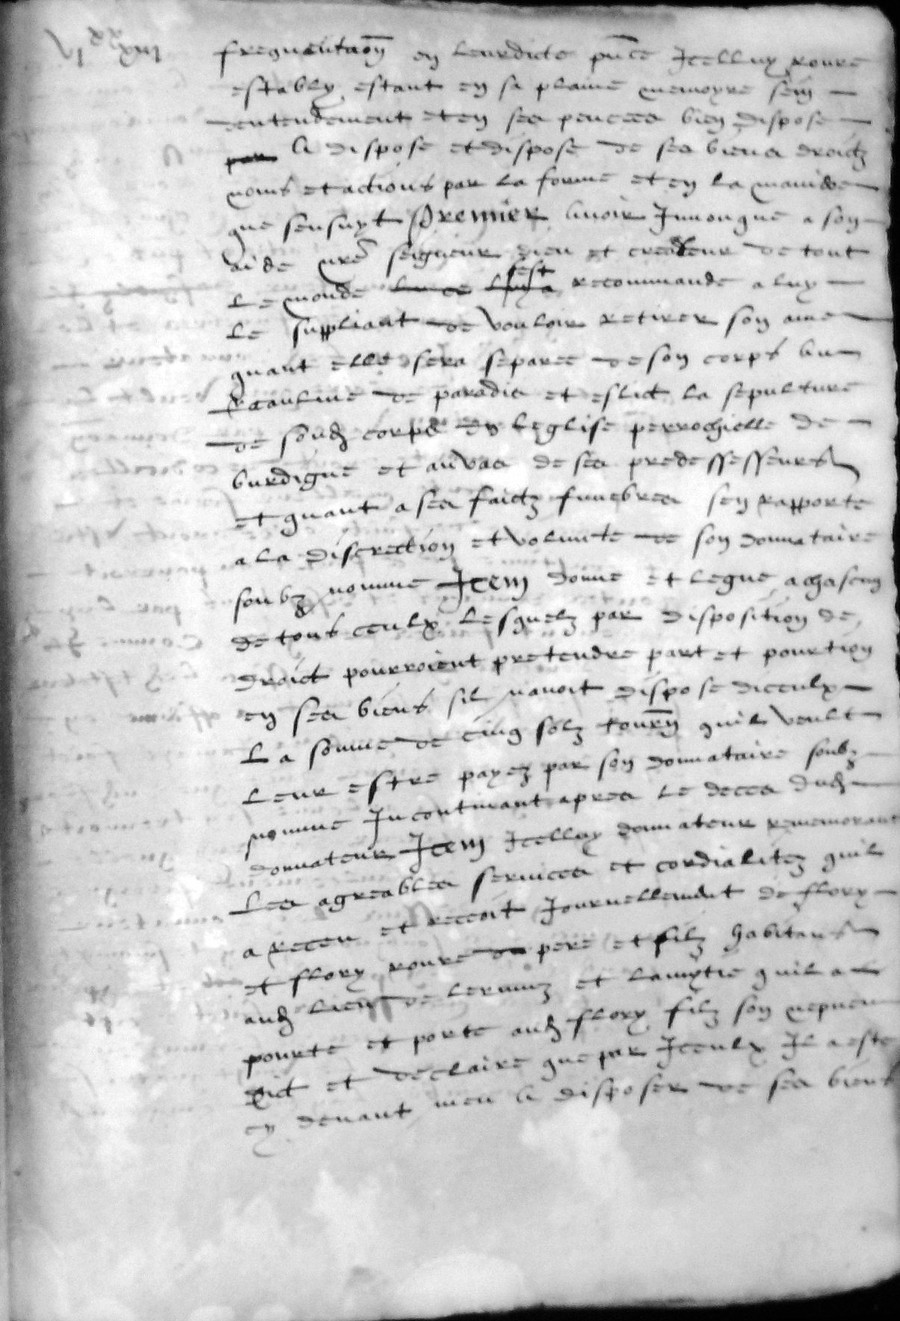 VIxx XIII
frequentaon en leurdicte pnce Icelluy roure
estably estant en sa plaine memoyre sein
dentendement et en ses pencees bien dispose
par a dispose et dispose de ses biens droictz
noms et actions par la forme et en la maniere
que sensuyt Premier avoir Invoqué a son
aide nre seigneur dieu et createur de tout
le monde sest recommande a luy
le suppliant de vouloir retirer son ame
quant elle sera separee de son corps au
Royaulme de paradis et eslict la sepulture
de soud corps en leglise perrochielle de
burdigne et au vas de ses predessesseurs
et quant a ses faictz funebres sen rapporte
a la discrection et volunte de son donnataire
soubz nomme Item donne et legue a chascun
de tous ceulx lesquelz par disposition de
droict pourroient pretendre part et pourtion
en ses biens sil navoit dispose diceulx
La somme de cinq solz tourn quil veult
leur estre payez par son donnataire soubz
nomme Incontinant apres le deces dud
donnateur Item Icelluy donnateur rememorant
les agreables services et cordialitez quil
a receu et recoit Journellement de flory
et flory roure pere et filz habitans
aud lieu de lermuz et lamytie quil a
pourte et porte aud flory filz son nepveu
Dict et declaire que par Iceulx Il a este
cy devant meu a disposer de ses biens